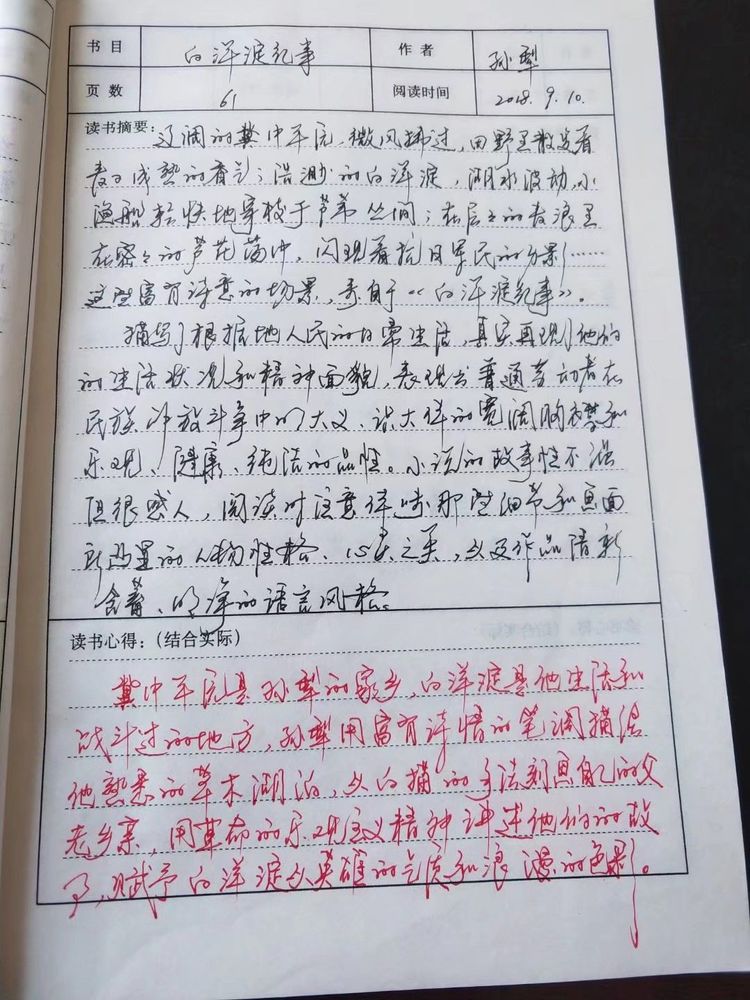 书目 白洋淀纪事 作者 孙犁
页数 61 阅读时间 2018.9.10.
读书摘要：辽阔的冀中平原，微风拂过，田野里散发着
麦子成熟的香气；浩渺的白洋淀，湖水波动，小
渔船轻快地穿梭于芦苇丛间；在层层的麦浪里
在密密的芦花荡中，闪现着抗日军民的身影……
这些富有诗意的场景，来自于《白洋淀纪事》。
描写了根据地人民的日常生活，真实再现了他们
的生活状况和精神面貌，表现出普通劳动者在
民族解放斗争中的大义、识大体的宽阔胸襟和
乐观、健康、纯洁的品性。小说的故事性不强
但很感人，阅读时注意体味那些细节和画面
所凸显的人物性格、心灵之美，以及作品清新
含蓄、明净的语言风格。
读书心得：（结合实际）
冀中平原是孙犁的家乡，白洋淀是他生活和
战斗过的地方，孙犁用富有诗情的笔调描绘
他熟悉的草木湖泊，以白描的手法刻画自己的父
老乡亲，用革命的乐观主义精神讲述他们的故
了，赋予白洋淀以英雄的气质和浪漫的色彩。